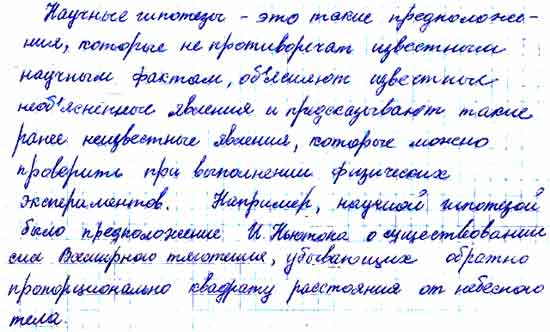 Научные гипотезы - это такие предположе-
ния, которые не противоречат известным
научным фактам, объясняют известные
необъясненные явления и предсказывают такие
ранее неизвестные явления, которые можно
проверить при выполнении физических
экспериментов. Например, научной гипотезой
было предположение И. Ньютона о существовании
сил Всемирного тяготения, убывающих обратно
пропорционально квадрату расстояния от небесного
тела.